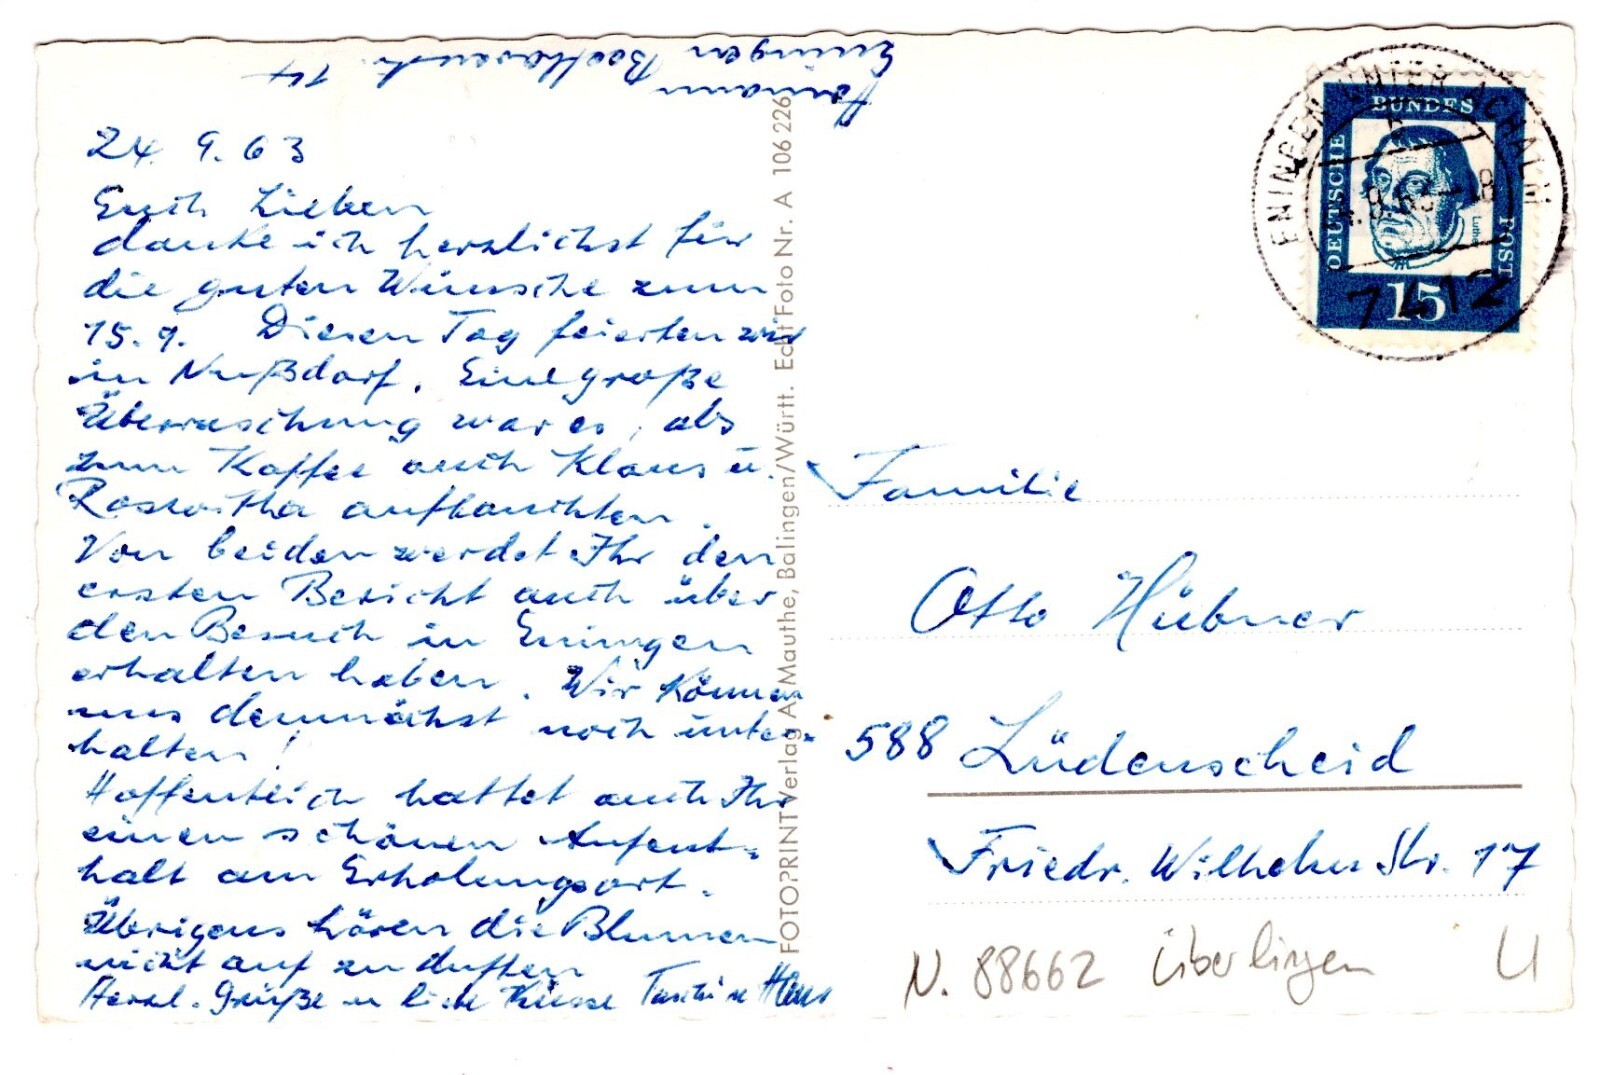 Hamann
Eningen Beethovenstr. 14
24. 9. 63
Euch Lieben
danke ich herzlichst für
die guten Wünsche zum
15.9. Diesen Tag feierten wir
in Nußdorf. Eine große
Überraschung war es, als
zum Kaffee auch Klaus u.
Roswitha auftauchten.
Von beiden werdet Ihr den
ersten Bericht auch über
den Besuch in Eningen
erhalten haben. Wir können
uns demnächst noch unter-
halten!
Hoffentlich hattet auch Ihr
einen schönen Aufent-
halt am Erholungsort.
Übrigens hören die Blumen
nicht auf zu duften
Herzl. Grüße u liebe Küsse Hans
FOTOPRINT Verlag A. Mauthe, Balingen/Württ. Echt Foto Nr. A 106 226
ENINGEN UNTER ACHALM
7412
DEUTSCHE BUNDES POST
Luther
15
Familie
Otto Hübner
588 Lüdenscheid
Friedr. Wilhelm Str. 17
N. 88662 Überlingen U